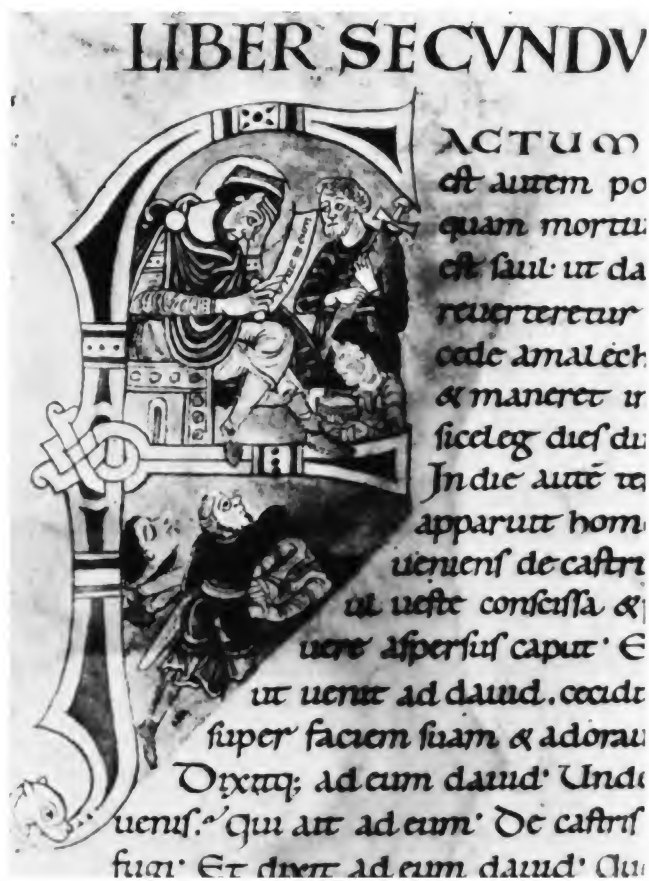 LIBER SECVNDV
FACTUM
est autem po
quam mortu
est saul· ut da
reuerteretur
cede amalech
& maneret in
siceleg dies du
In die autē te
apparuit hom
ueniens de castri
ueste conscissa &
uere aspersus caput· E
ut uenit ad dauid. cecidit
super faciem suam & adorau
Dixitq; ad eum dauid· Unde
uenis. Qui ait ad eum· De castris
fugi· Et dixit ad eum dauid· Qui